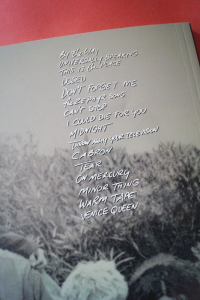 BY THE WAY
UNIVERSALLY SPEAKING
THIS IS THE PLACE
DOSED
DON'T FORGET ME
THE ZEPHYR SONG
CAN'T STOP
I COULD DIE FOR YOU
MIDNIGHT
THROW AWAY YOUR TELEVISION
CABRON
TEAR
ON MERCURY
MINOR THING
WARM TAPE
VENICE QUEEN